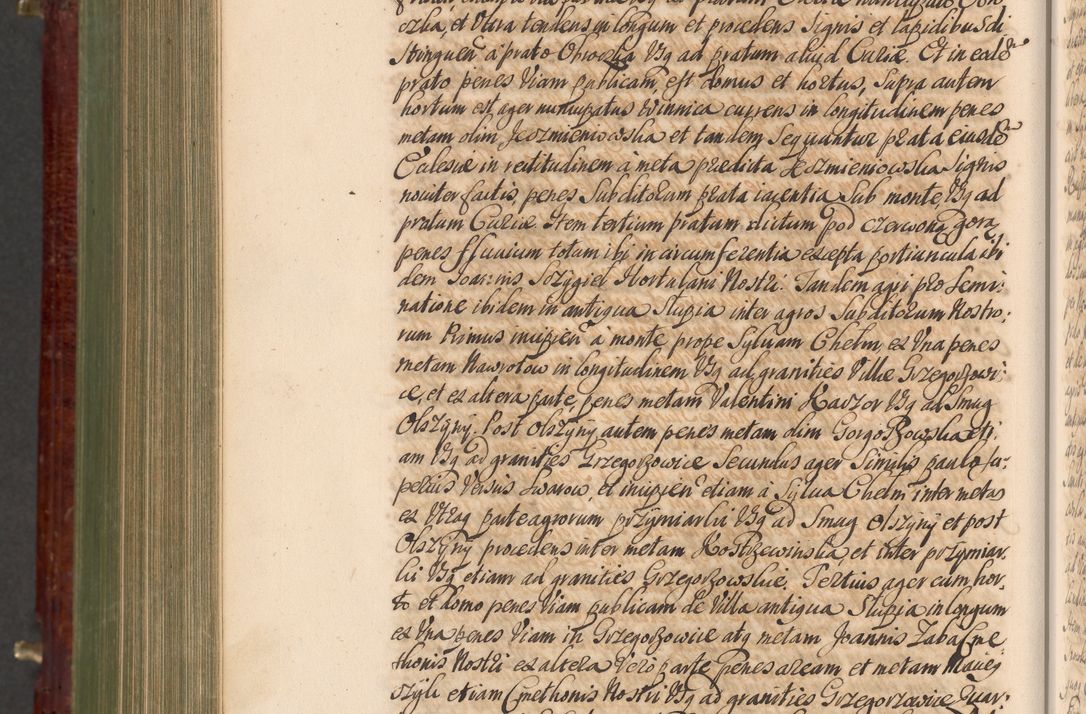 ozka, et Ultra tendens in longum et procedens Signis et lapidibus di
stinguen̄ à prato Orwoska Usq ad pratum aliud Curiæ. Et in eode
prato penes Viam publicam, est domus et hortus, Supra autem
hortum est ager nuncupatus Winnica currens in longitudinem penes
metam olim Jeszmieniowska et tandem Sequantur prata eiusde
Eclesiæ in rectitudinem à meta prædicta Jeszmieniowska Signis
noviter factis, penes Subditorum prata iacentia Sub monte, Usq ad
pratum Curiæ. Item tertium pratum dictum pod czerwoną górą
penes fluvium totum ibi in circumferentia excepta portiuncula ibi
dem Joannis Szygiel Hortulani Nostri. Tandem agri pro Semi:
natione ibidem in antiqua Słupia inter agros Subditorum Nostro:
rum Primus incipien̄ à monte prope Sylvam Chełm ex Una penes
metam Nawrotow in longitudinem Usq ad granities Villæ Grzegorzowi:
cæ, et ex altera parte, penes metam Valentini Kaczor Usq ad Smug
Olszyny. Post Olszyny autem penes metam olim Gorgorzowska eti:
am Usq ad granities Grzegorzowicæ Secundus ager Similis paulo su:
perius Versus Swarow, et incipien̄ etiam à Sylva Chełm inter metas
ex Utraq parte agrorum przymiarki Usq ad Smug Olszyny et post
Olszyny procedens inter metam Kostrzewinska et inter przymiar:
ki Usq etiam ad granities Grzegorzowskie. Tertius ager cum hor:
to et domo penes Viam publicam de Villa antiqua Słupia in longum
ex Una penes Viam in Grzegorzowice atq metam Joannis Zaba Cme
thonis Nostri ex altera Vero parte penes aream et metam Maciey
Szyle etiam Cmethonis Nostri Usq ad granities Grzegorzowice Quar: